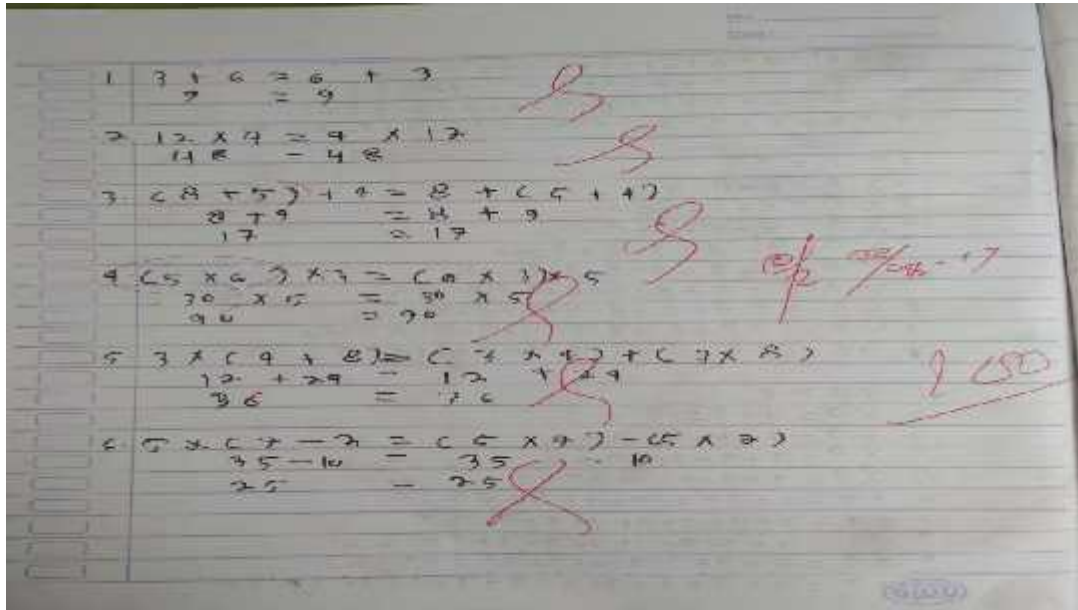 1 3 + 6 = 6 + 3
9 = 9
2 12 x 4 = 4 x 12
48 = 48
3. (8 + 5) + 4 = 8 + (5 + 4)
8 + 9 = 8 + 9
17 = 17
4 (5 x 6) x 3 = (6 x 3) x 5
30 x 5 = 30 x 5
90 = 90
5 3 x (4 + 8) = (3 x 4) + (3 x 8)
12 + 24 = 12 + 24
36 = 36
6 5 x (7 - 2 = (5 x 7) - (5 x 2)
35 - 10 = 35 - 10
25 - 25